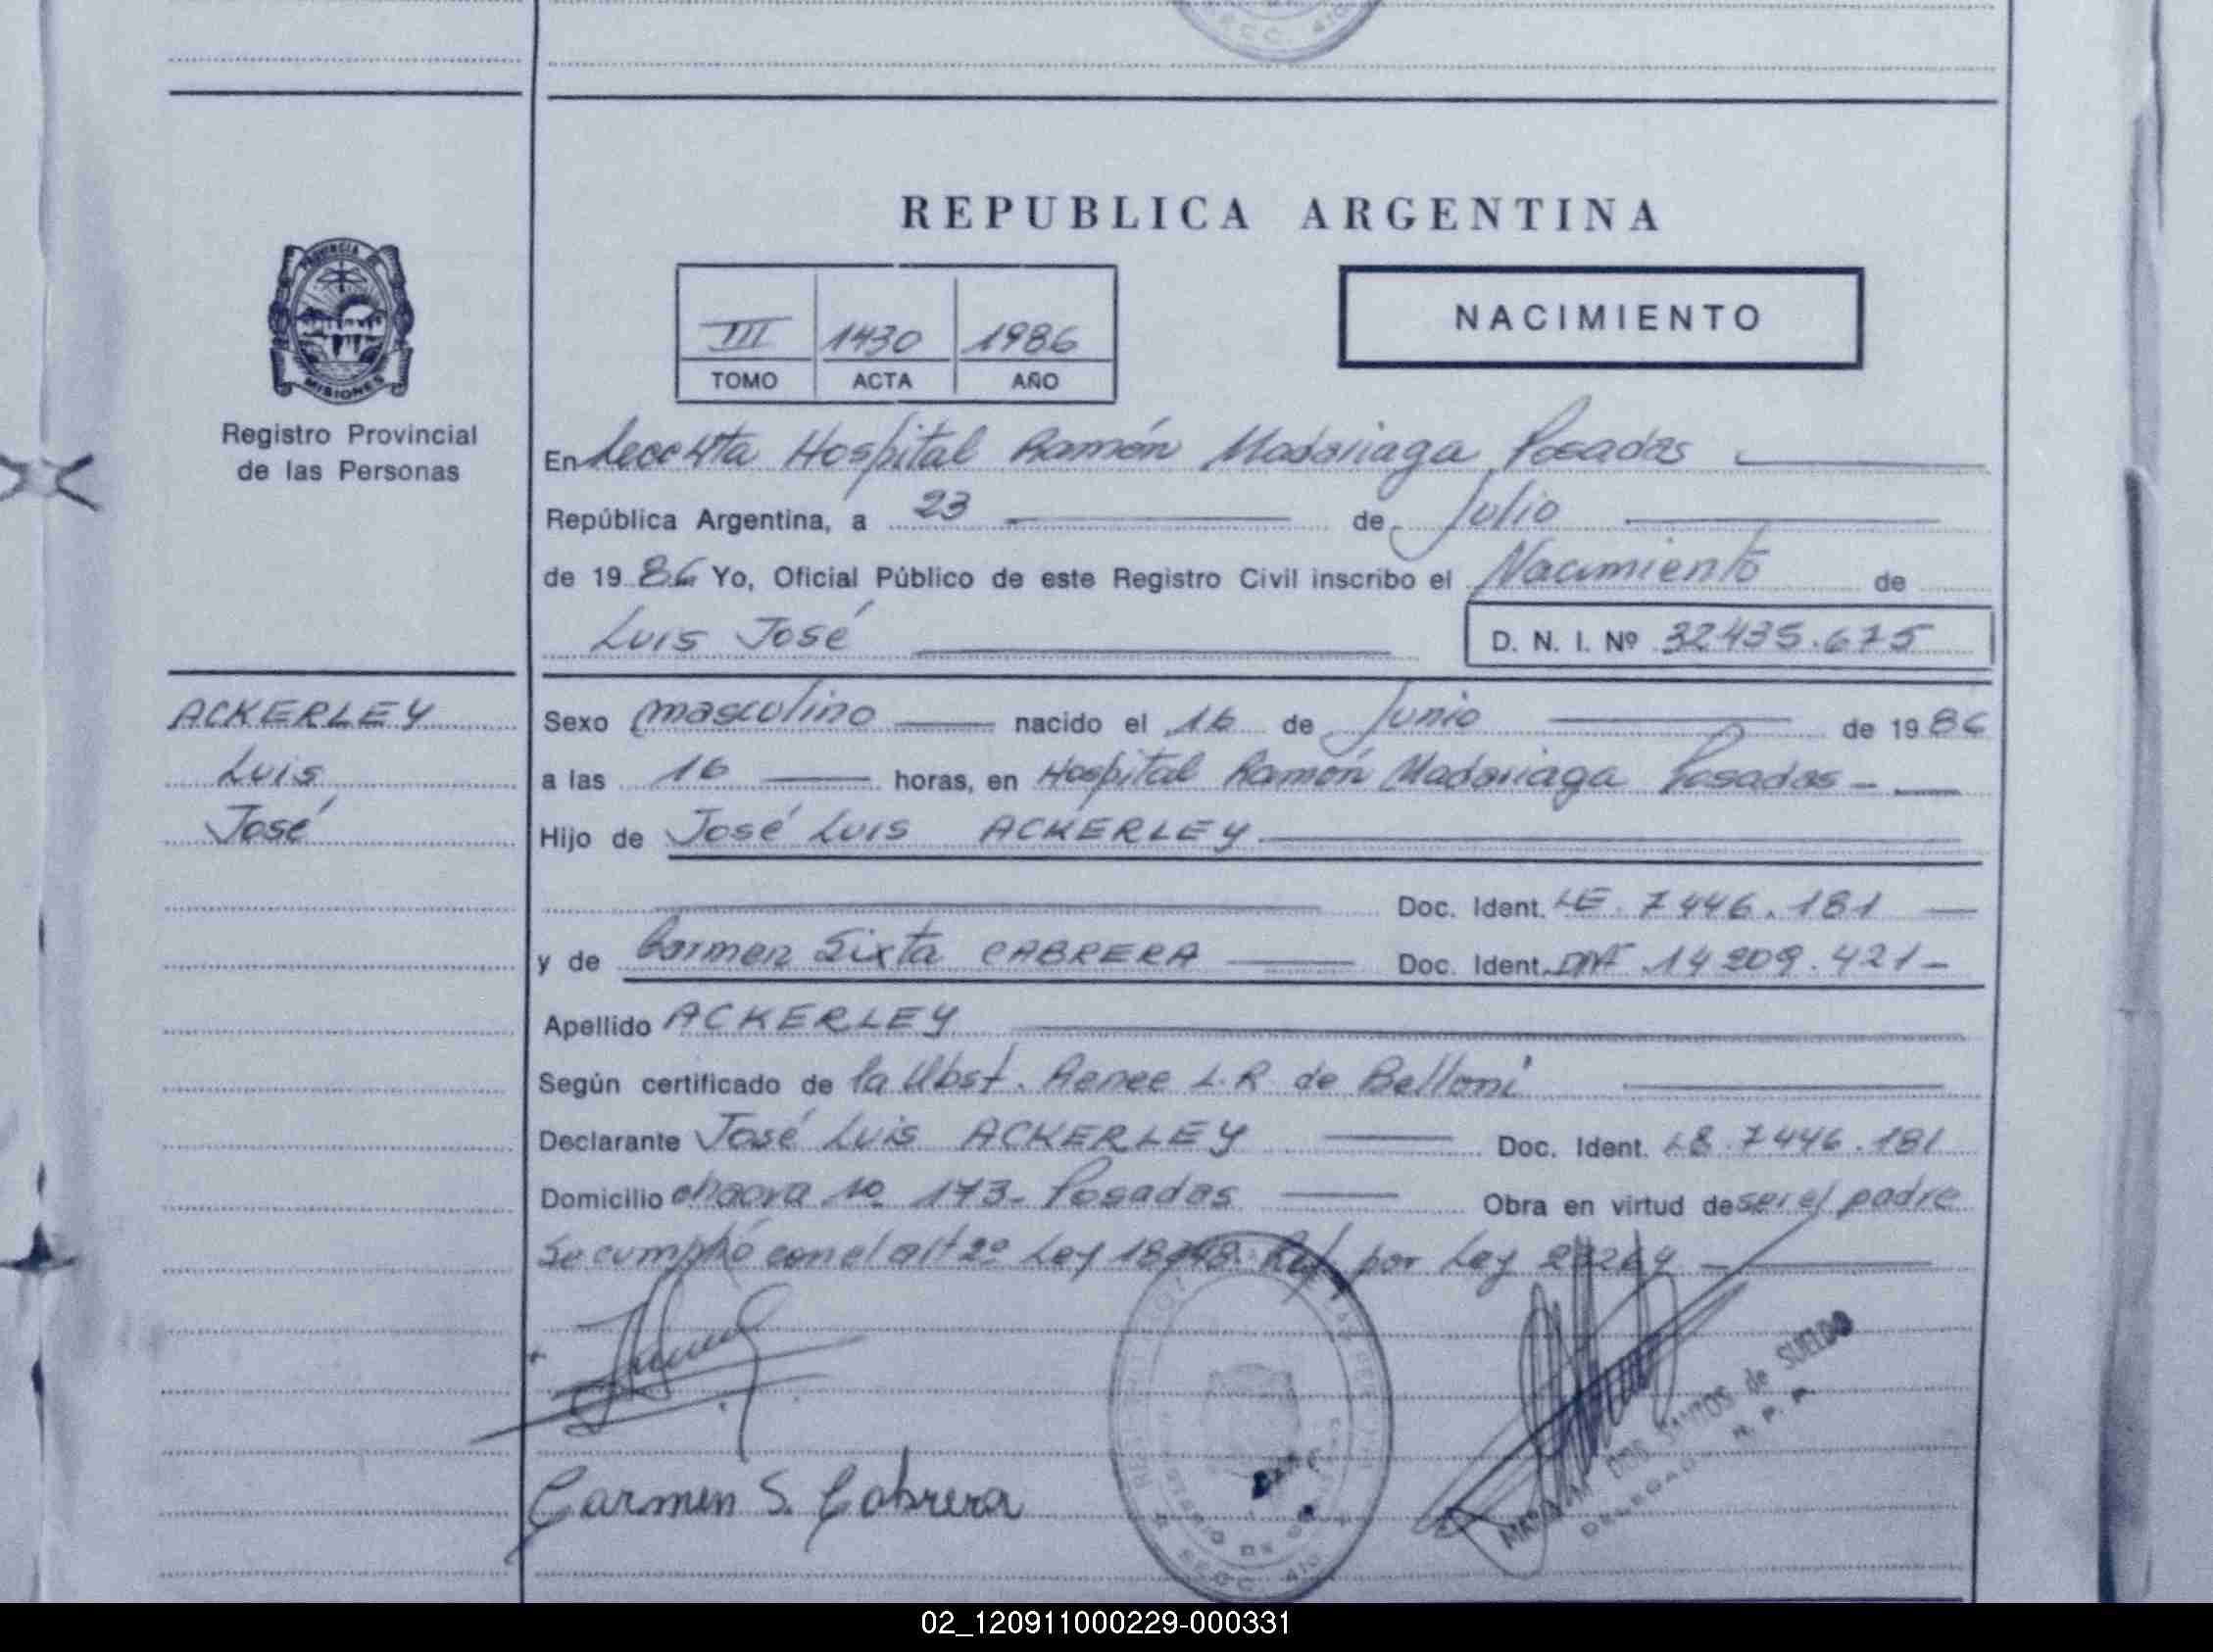 REPUBLICA ARGENTINA
PROVINCIA DE
MISIONES
Registro Provincial
de las Personas
III 1430 1986
TOMO ACTA AÑO
NACIMIENTO
En Secc 4ta Hospital Ramón Madariaga Posadas
República Argentina, a 23 de Julio
de 1986 Yo, Oficial Público de este Registro Civil inscribo el Nacimiento de
Luis José D. N. I. Nº 32435.675
ACKERLEY
Luis
José
Sexo masculino nacido el 16 de Junio de 1986
a las 16 horas, en Hospital Ramón Madariaga Posadas
Hijo de José Luis ACKERLEY
Doc. Ident. LE. 7446.181
y de Carmen Sixta CABRERA Doc. Ident. DNI 14209.421
Apellido ACKERLEY
Según certificado de la Obst. Renee L.R de Belloni
Declarante José Luis ACKERLEY Doc. Ident. LE. 7446.181
Domicilio chacra nº 173 - Posadas Obra en virtud de ser el padre
Se cumplió con el art 2º Ley 18248. Ref. por Ley 23264
Carmen S. Cabrera
DOS SANTOS de SUELDO
02_120911000229-000331